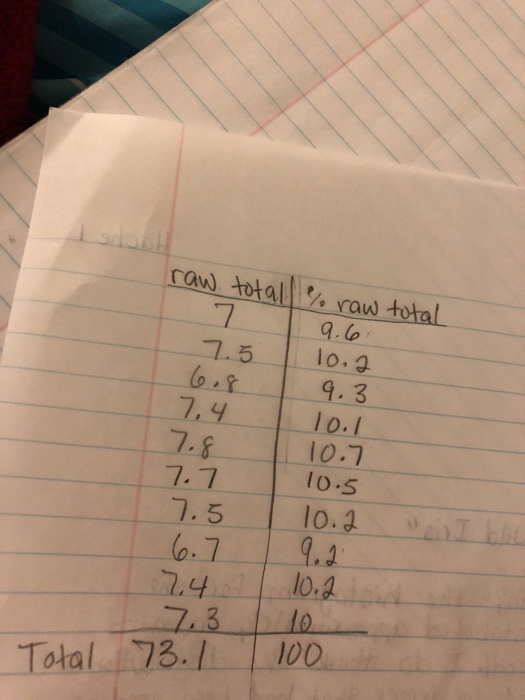 raw total % raw total
7 9.6
7.5 10.2
6.8 9.3
7.4 10.1
7.8 10.7
7.7 10.5
7.5 10.2
6.7 9.2
7.4 10.2
7.3 10
Total 73.1 100